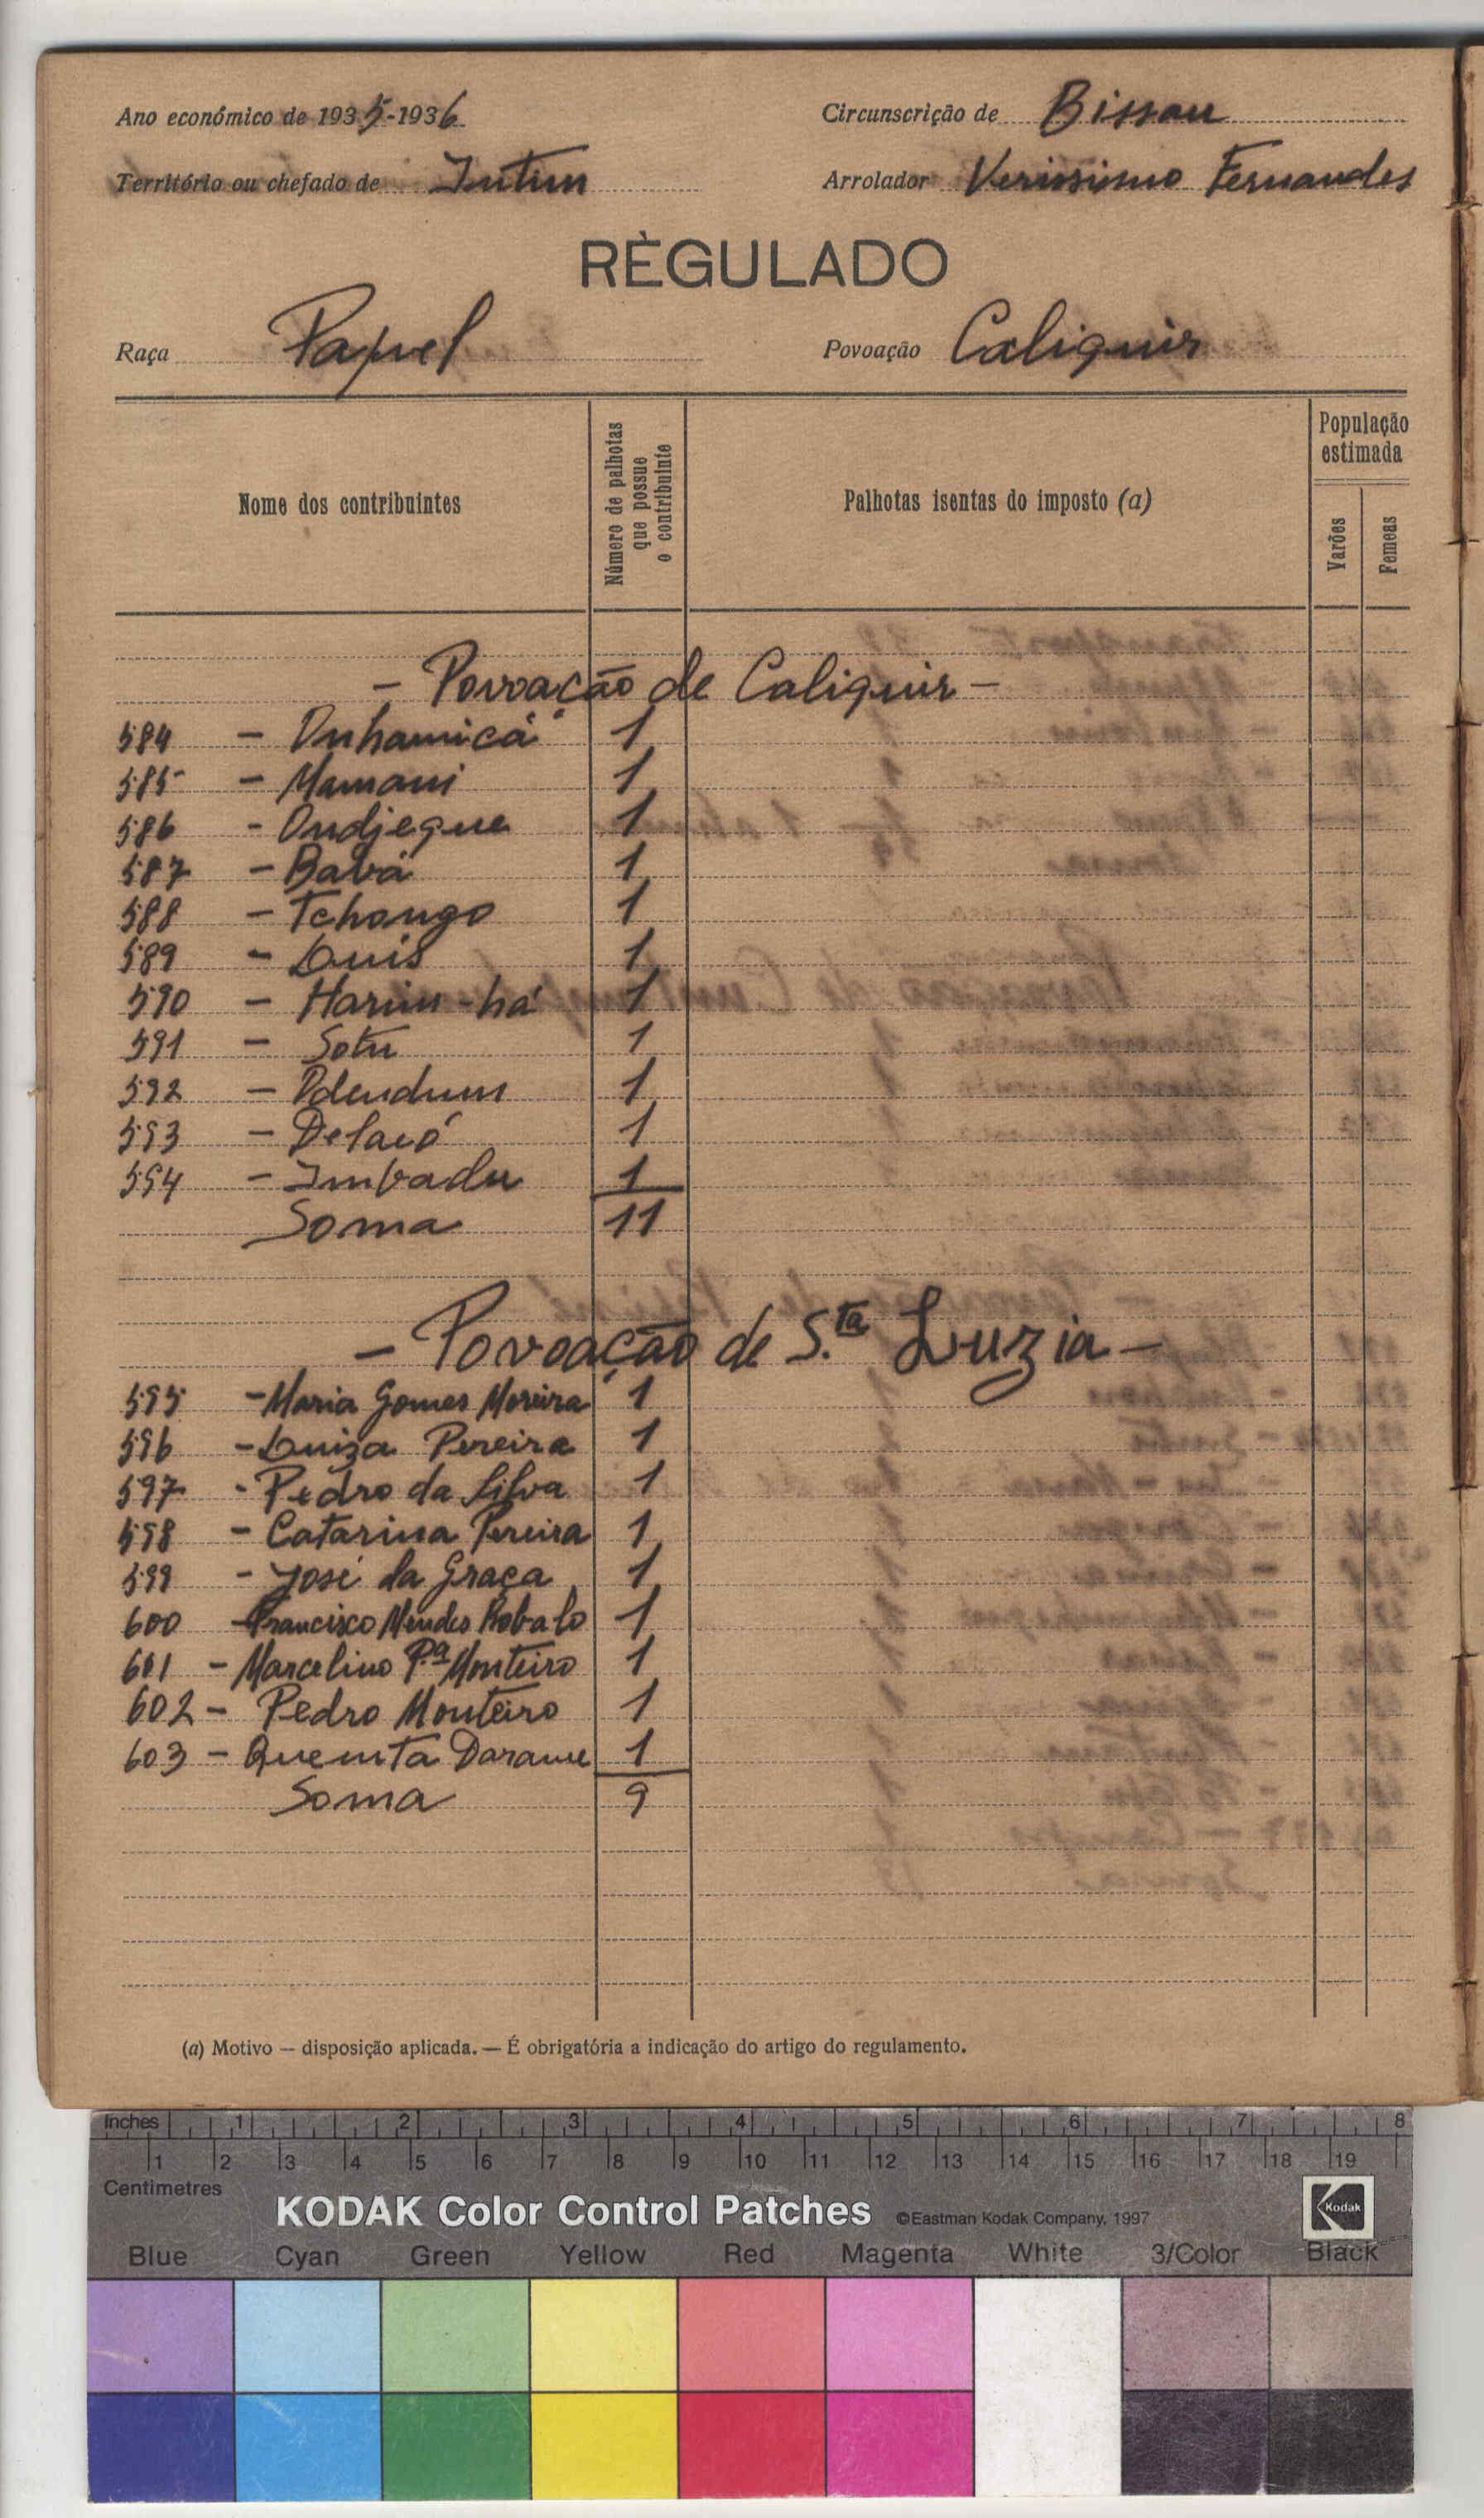 Ano económico de 1935-1936 Circunscrição de Bissau
Território ou chefado de Intim Arrolador Verissimo Fernandes
RÈGULADO
Raça Papel Povoação Caliquir
Nome dos contribuintes Número de palhotas que possue o contribuinte Palhotas isentas do imposto (a) População estimada Varões Femeas
- Povoação de Caliquir -
584 - Inhamicá 1
585 - Mamani 1
586 - Ondjeque 1
587 - Babá 1
588 - Tchongo 1
589 - Luis 1
590 - Harim-há 1
591 - Sotu 1
592 - 1
593 - 1
594 - Imbadu 1
Soma 11
- Povoação de S.ta Luzia -
595 - Maria Gomes Moreira 1
596 - Luiza Pereira 1
597 - Pedro da Silva 1
598 - Catarina Pereira 1
599 - José da Graça 1
600 - Francisco Mendes Robalo 1
601 - Marcelino P.ª Monteiro 1
602 - Pedro Monteiro 1
603 - Quemta Darame 1
Soma 9
(a) Motivo — disposição aplicada. — É obrigatória a indicação do artigo do regulamento.
Inches 1 2 3 4 5 6 7 8
1 2 3 4 5 6 7 8 9 10 11 12 13 14 15 16 17 18 19
Centimetres
KODAK Color Control Patches ©Eastman Kodak Company, 1997 Kodak
Blue Cyan Green Yellow Red Magenta White 3/Color Black